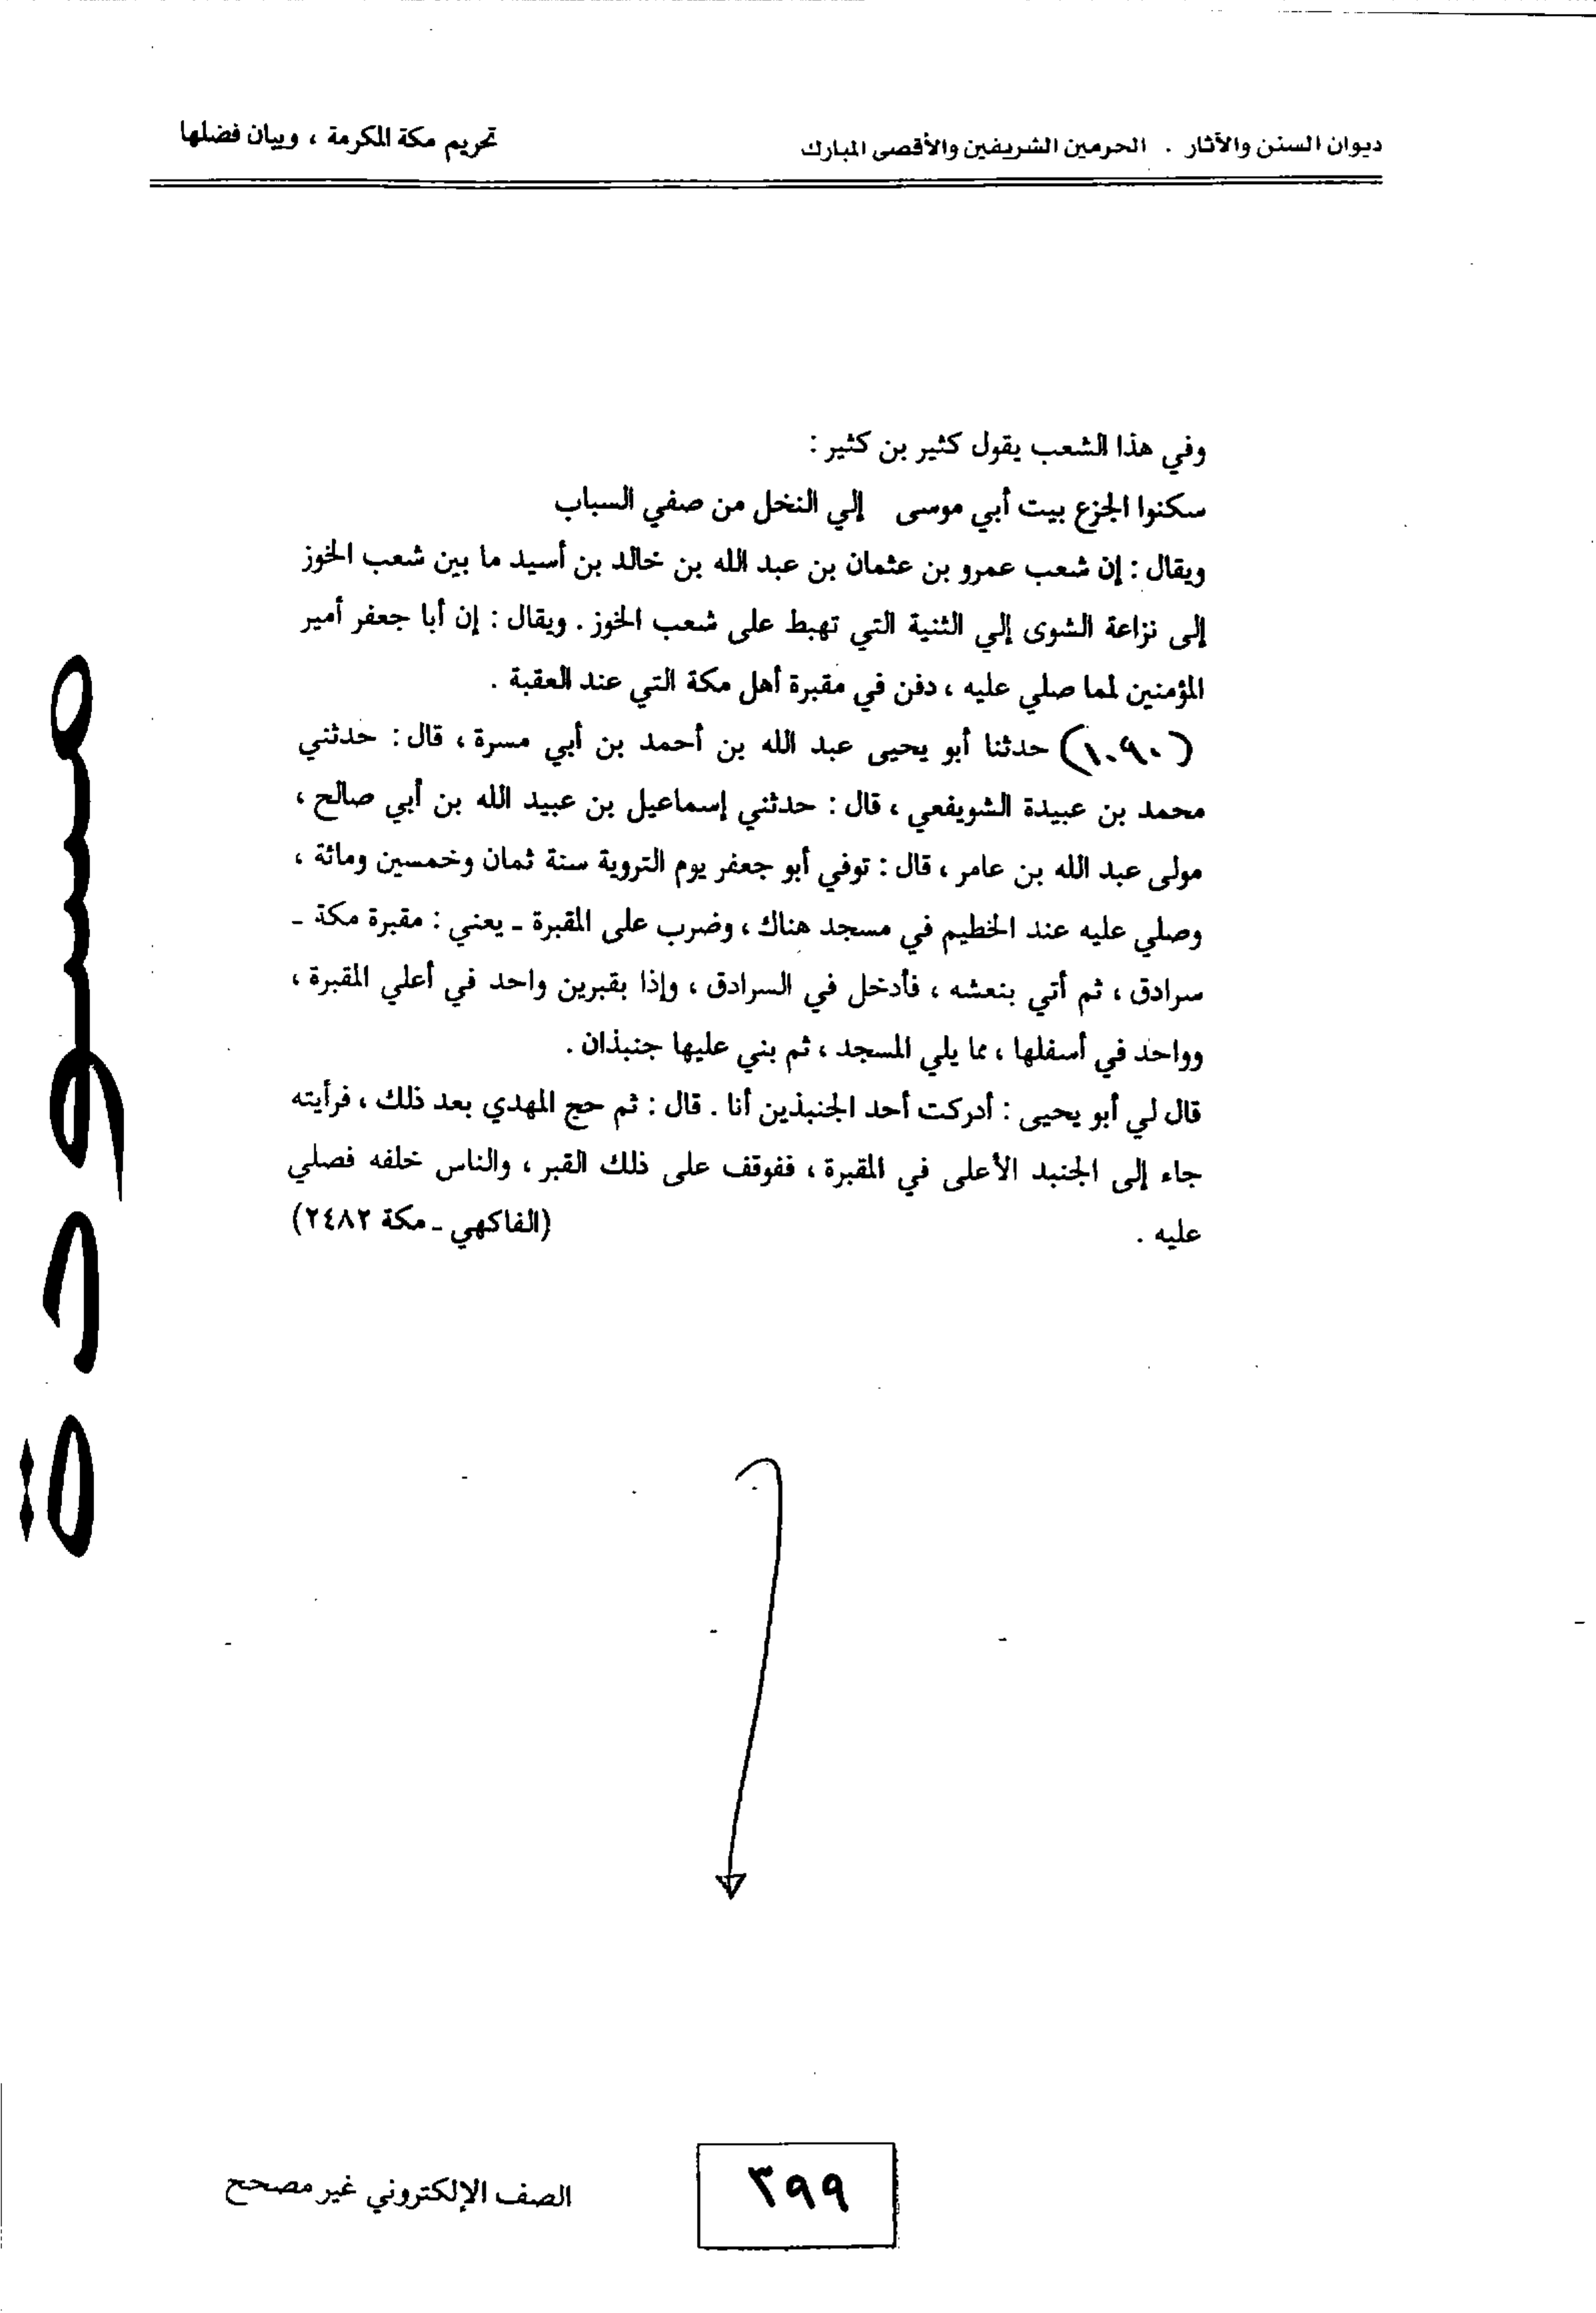 ديوان السنن والآثار . الحرمين الشريفين والأقصى المبارك
تحريم مكة المكرمة ، وبيان فضلها
وفي هذا الشعب يقول كثير بن كثير :
سكنوا الجزع بيت أبي موسى إلي النخل من صفي السباب
ويقال : إن شعب عمرو بن عثمان بن عبد الله بن خالد بن أسيد ما بين شعب الخوز
إلى نزاعة الشوى إلي الثنية التي تهبط على شعب الخوز . ويقال : إن أبا جعفر أمير
المؤمنين لما صلي عليه ، دفن في مقبرة أهل مكة التي عند العقبة .
(١٠٩٠) حدثنا أبو يحيى عبد الله بن أحمد بن أبي مسرة ، قال : حدثني
محمد بن عبيدة الشويفعي ، قال : حدثني إسماعيل بن عبيد الله بن أبي صالح ،
مولى عبد الله بن عامر ، قال : توفي أبو جعفر يوم التروية سنة ثمان وخمسين ومائة ،
وصلي عليه عند الخطيم في مسجد هناك ، وضرب على المقبرة ـ يعني : مقبرة مكة ـ
سرادق ، ثم أتي بنعشه ، فأدخل في السرادق ، وإذا بقبرين واحد في أعلي المقبرة ،
وواحد في أسفلها ، مما يلي المسجد ، ثم بني عليها جنبذان .
قال لي أبو يحيى : أدركت أحد الجنبذين أنا . قال : ثم حج المهدي بعد ذلك ، فرأيته
جاء إلى الجنبد الأعلى في المقبرة ، ففوقف على ذلك القبر ، والناس خلفه فصلي
عليه . (الفاكهي ـ مكة ٢٤٨٢)
مسودة
٣٩٩
الصف الإلكتروني غير مصحح